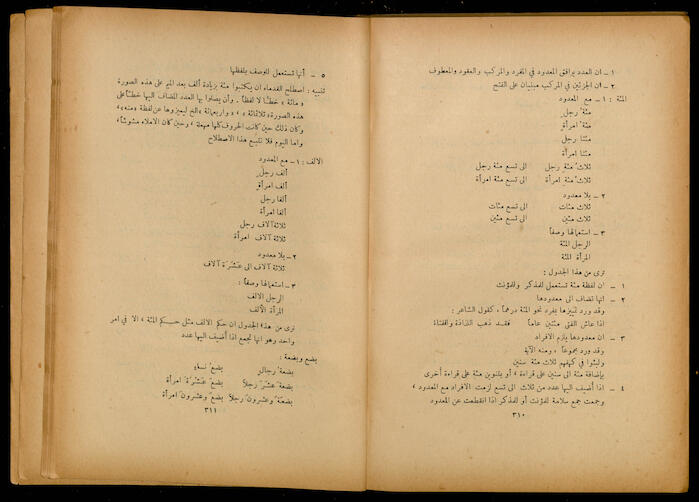 ١ – ان العدد يوافق المعدود في المفرد والمركب والعقود والمعطوف
٢ – ان الجزئين في المركب مبنيان على الفتح
المئة : ١ – مع المعدود
مئة رجلٍ
مئة امرأةٍ
مئتا رجل
مئتا امرأة
ثلاث مئة رجل الى تسع مئة رجل
ثلاث مئة امرأة الى تسع مئة امرأة
٢ – بلا معدود
ثلاث مئات الى تسع مئات
ثلاث مئين الى تسع مئين
٣ – استعمالها وصفاً
الرجل المئة
المرأة المئة
نرى من هذا الجدول :
١ – ان لفظة مئة تستعمل للمذكر وللمؤنث
٢ – انها تضاف الى معدودها
وقد ورد تمييزها بمفرد نحو المئة درهماً ، كقول الشاعر :
اذا عاش الفتى مئتين عاماً فقد ذهب اللذاذة والفتاء
٣ – ان معدودها يلزم الافراد
وقد ورد مجموعاً ، ومنه الآية
ولبثوا في كهفهم ثلاث مئة سنين
بإضافة مئة الى سنين على قراءة ، او بتنوين مئة على قراءة أخرى
٤ – اذا أُضيف اليها عدد من ثلاث الى تسع لزمت الافراد مع المعدود ،
وجمعت جمع سلامة لمؤنث أو لمذكر اذا انقطعت عن المعدود
٣١٠
٥ – أنها تستعمل للوصف بلفظها
تنبيه : اصطلح القدماء ان يكتبوا مئة بزيادة ألف بعد الميم على هذه الصورة
« مائة » خطّاً لا لفظاً . وأن يصلوا بها العدد المضاف اليها خطّاً على
هذه الصورة « ثلاثمائة » ، « واربعمائة » الخ ليميزوها عن لفظة « منه » ،
وكان ذلك حين كانت الحروف كلها مهملة ، وحين كان الاملاء مشوشاً ،
واما اليوم فلا نتبع هذا الاصطلاح
الالف : ١ – مع المعدود
ألف رجلٍ
ألف امرأةٍ
ألفا رجل
ألفا امرأة
ثلاثة آلاف رجل
ثلاثة آلاف امرأة
٢ – بلا معدود
ثلاثة آلاف الى عَشَرَة آلاف
٣ – استعمالها وصفاً :
الرجل الالف
المرأة الألف
نرى من هذا الجدول ان حكم الالف مثل حكم المئة ، الا في امر
واحد وهو انها تجمع اذا أُضيف اليها عدد
بضع وبضعة :
بضعة رجالٍ بضع نساءٍ
بضعة عشر رجلاً بضع عشرة امرأة
بضعة وعشرون رجلاً بضع وعشرون امرأة
٣١١